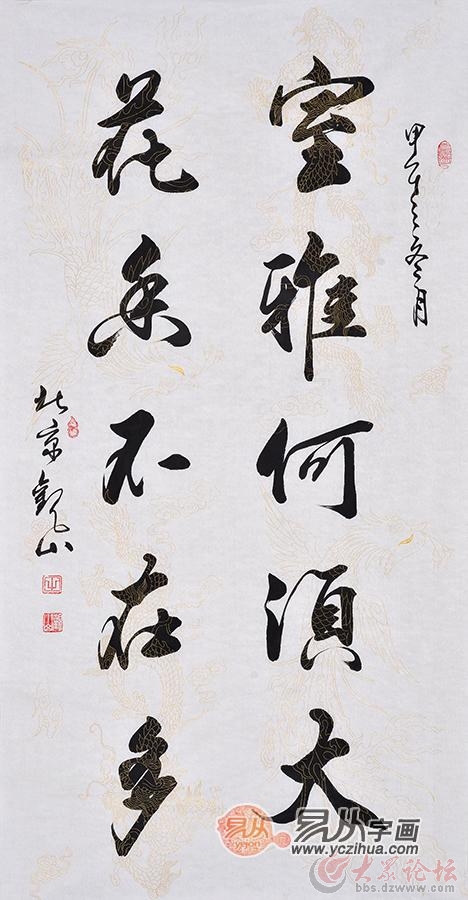 甲午之冬月
室雅何須大
花香不在多
北京
山
易从
易从字画
www.yczihua.com
大众论坛
bbs.dzwww.com